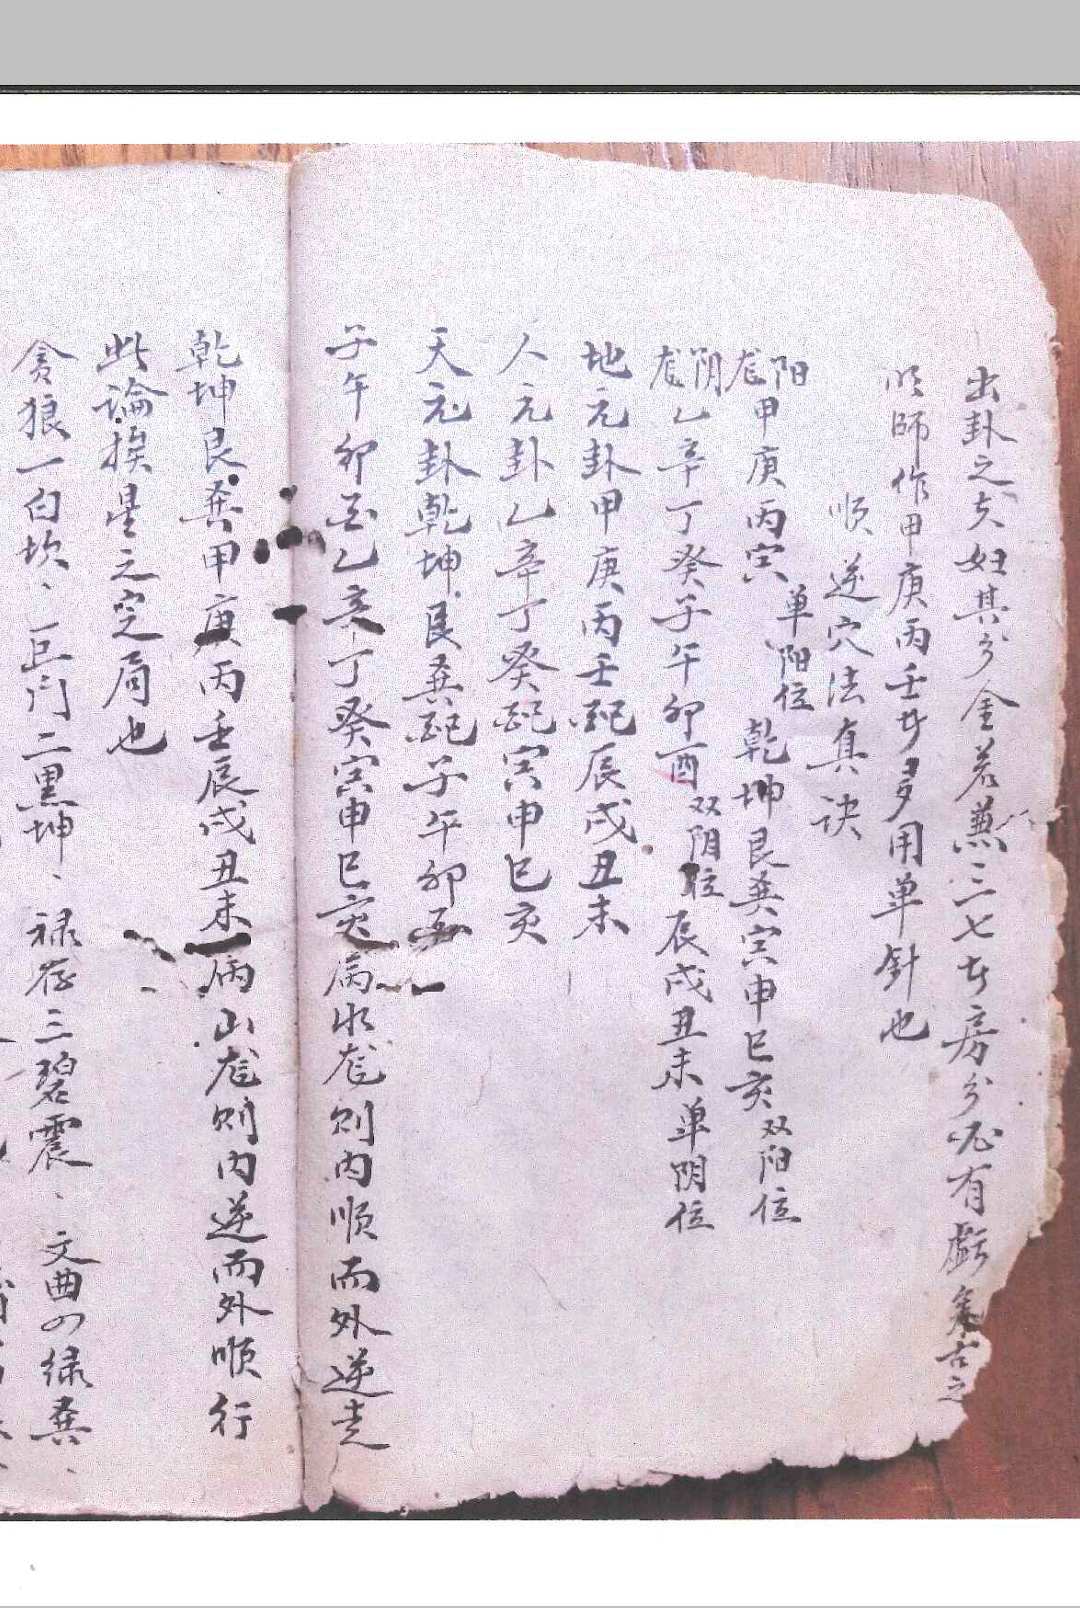 出卦之夫妇其分金若兼三七在房分必有亏矣古之
明师作甲庚丙壬才多用单针也
顺逆穴法真诀
阳龙甲庚丙寅单阳位乾坤艮巽寅申巳亥双阳位
阴龙乙辛丁癸子午卯酉双阴位辰戌丑未单阴位
地元卦甲庚丙壬配辰戌丑未
人元卦乙辛丁癸配寅申巳亥
天元卦乾坤艮巽配子午卯酉
子午卯酉乙辛丁癸寅申巳亥属水龙则内顺而外逆走
乾坤艮巽甲庚丙壬辰戌丑未属山龙则内逆而外顺行
此论挨星之定局也
贪狼一白坎、巨门二黑坤、禄存三碧震、文曲四绿巽、